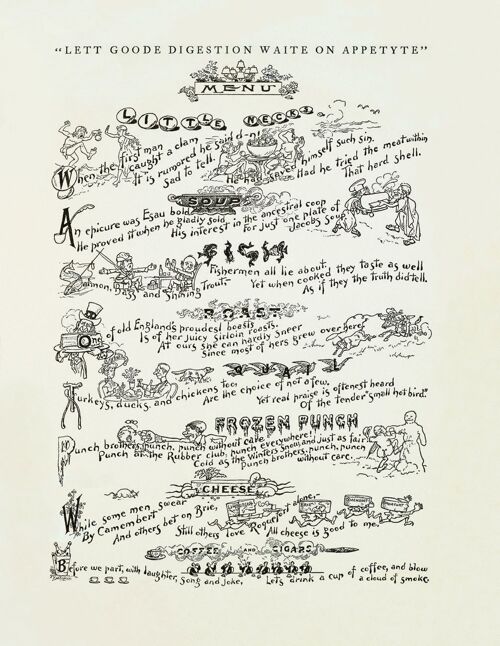 "LETT GOODE DIGESTION WAITE ON APPETYTE"
MENU
LITTLE NECKS
When the first man caught a clam
It is rumored he said d-n!
Sad to tell.
He had saved himself such sin.
Had he tried the meat within
That hard shell.
SOUP
An epicure was Esau bold
He proved it when he gladly sold
His interest in the ancestral coop
For just one plate of
Jacobs Soup
FISH
Fishermen all lie about
Salmon, Bass and Shining Trout-
Yet when cooked they taste as well
As if they the truth did tell.
ROAST
One of old England's proudest boasts
Is of her juicy Sirloin roasts.
At ours she can hardly sneer
Since most of hers grew over here
QUAIL
Turkeys, ducks, and chickens too;
Are the choice of not a few.
Yet real praise is oftenest heard
Of the tender "small hot bird."
FROZEN PUNCH
Punch brothers, punch, punch without care
Punch at the Rubber club, punch everywhere!
Cold as the Winters Snow, and just as fair
Punch brothers, punch, punch
without care.
CHEESE
While some men swear
By Camembert
And others bet on Brie,
Still others love Roquefort alone,-
All cheese is good to me.
COFFEE AND CIGARS
Before we part, with laughter, Song and Joke,
Let's drink a cup of coffee, and blow
a cloud of smoke.